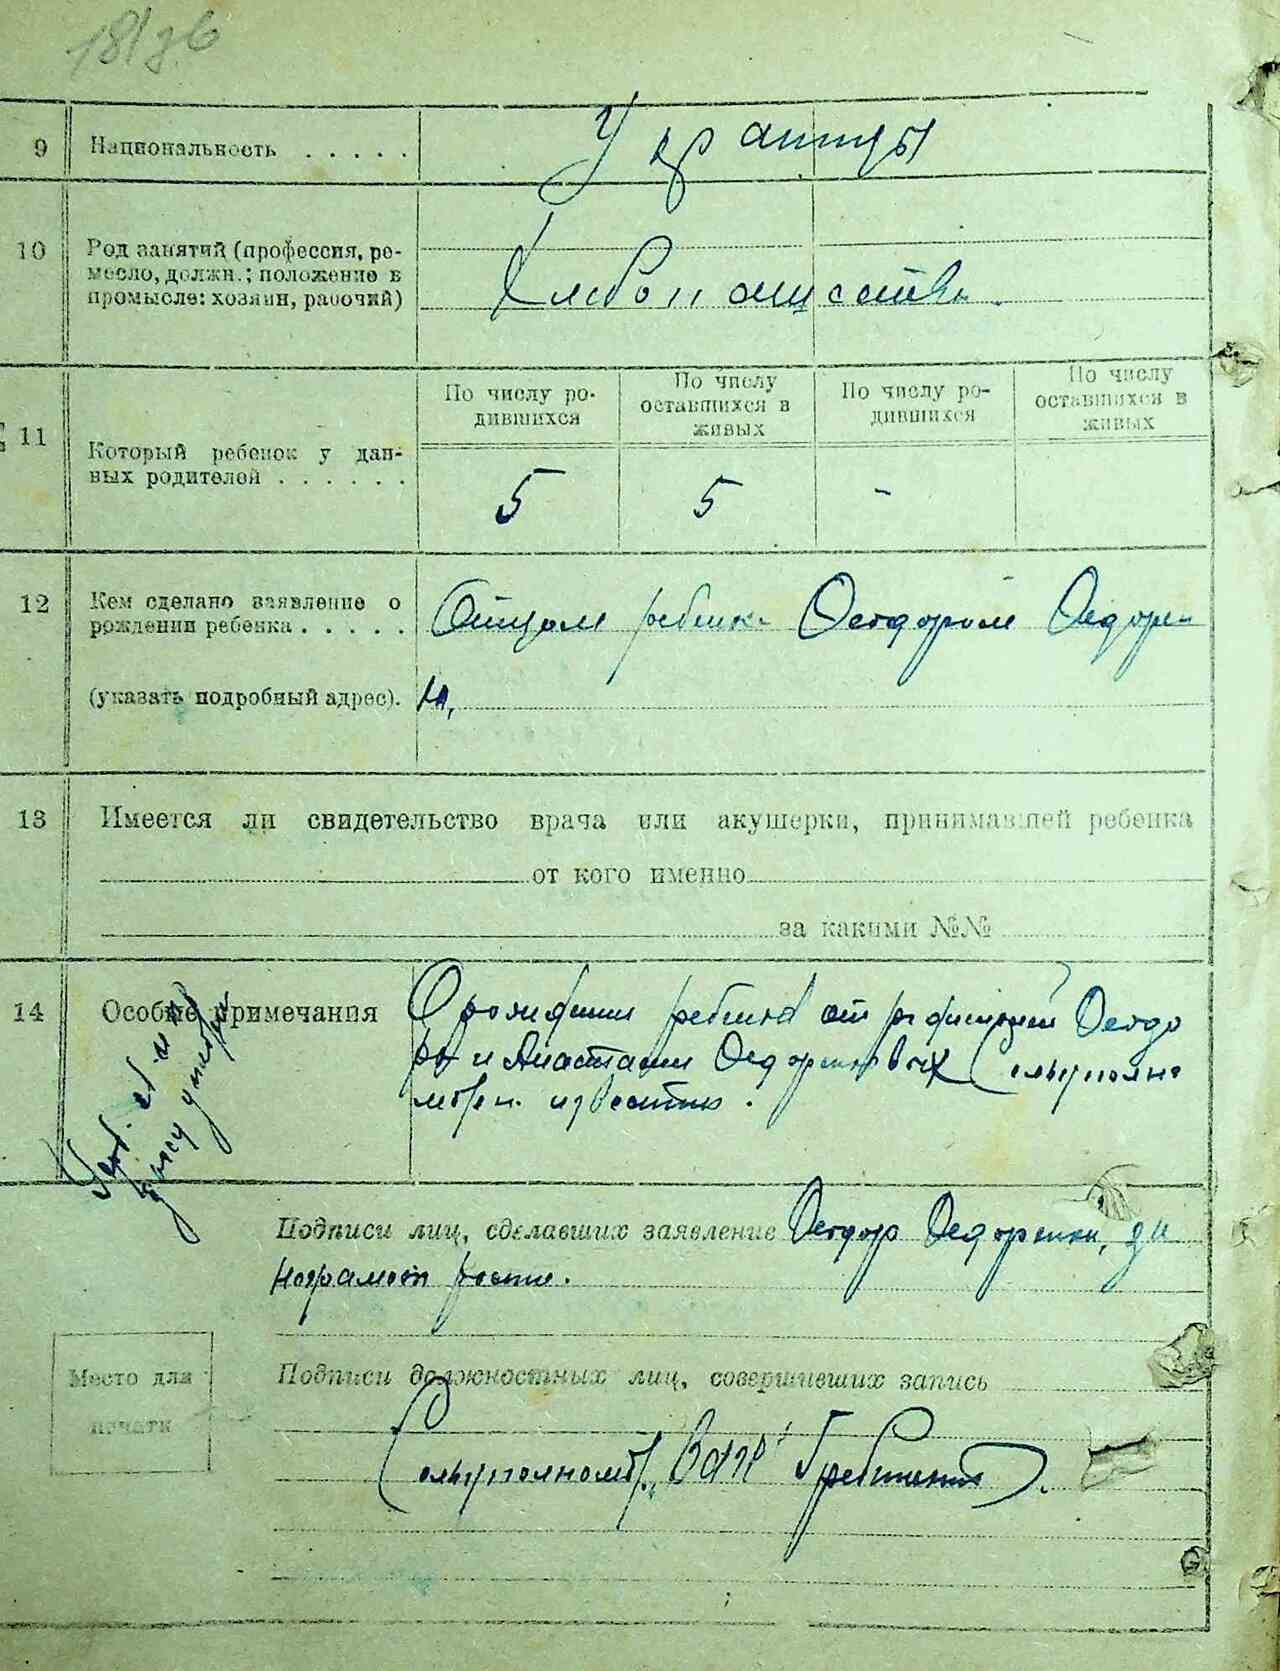 9 Национальность . . . . .
Украинцы
10 Род занятий (профессия, ре-
месло, должн.; положение в
промысле: хозяин, рабочий)
Хлебопашество.
11 Который ребенок у дан-
ных родителей . . . . . .
По числу ро-
дившихся
По числу
оставшихся в
живых
По числу ро-
дившихся
По числу
оставшихся в
живых
5 5 -
12 Кем сделано заявление о
рождении ребенка . . . . .
(указать подробный адрес).
Отцом ребенка Федором Федорен
ко,
13 Имеется ли свидетельство врача или акушерки, принимавшей ребенка
от кого именно
за какими №№
14 Особые примечания
О рождении ребенка от родителей Федо
ра и Анастасии Федоренковых Сельуполно
моч. известно.
Подписи лиц, сделавших заявление Федор Федоренко, а
неграмот
Место для
печати
Подписи должностных лиц, совершивших запись
Сельуполномоч.